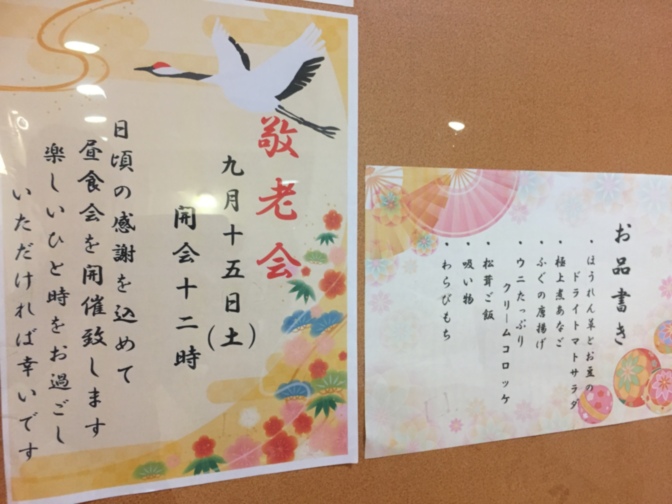 敬老会
九月十五日(土)
開会十二時
日頃の感謝を込めて
昼食会を開催致します
楽しいひと時をお過ごし
いただければ幸いです
お品書き
・ほうれん草とお豆の
ドライトマトサラダ
・極上煮あなご
・ふぐの唐揚げ
・ウニたっぷり
クリームコロッケ
・松茸ご飯
・吸い物
・わらびもち